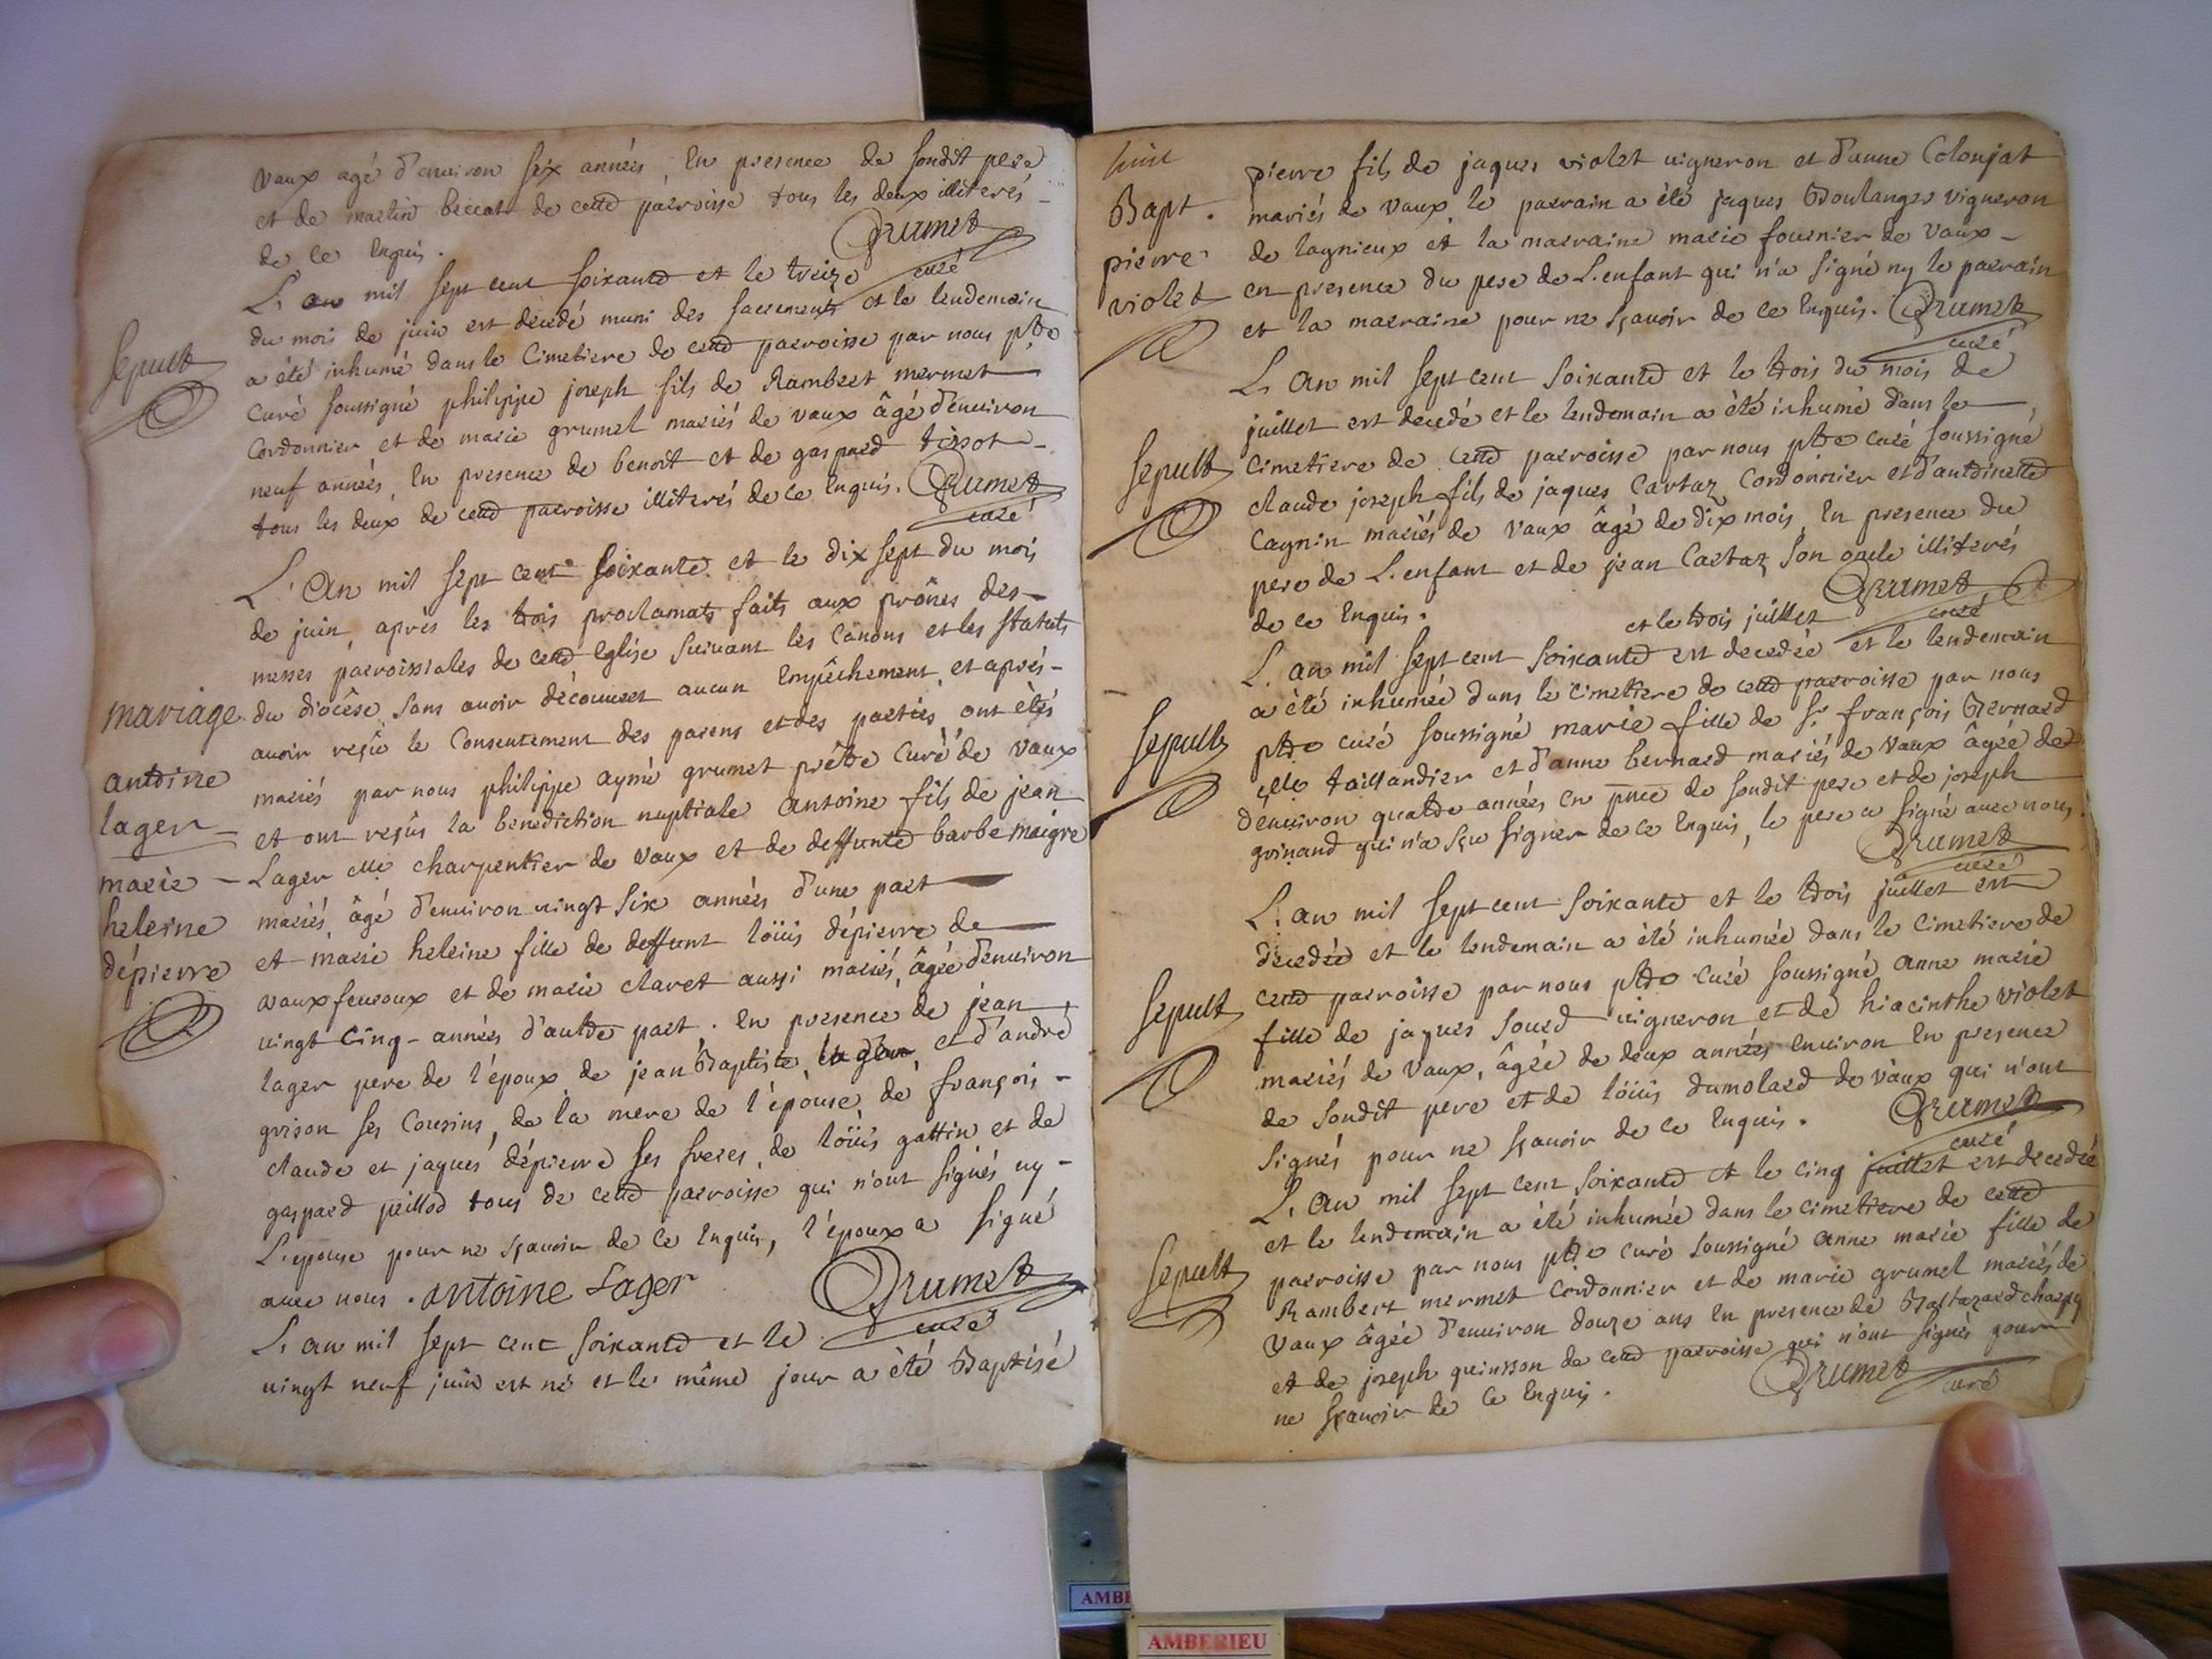 vaux agé d'environ six années, En presence de sondit pere
et de martin beccat de cette parroisse tous les deux illiterés
de ce Enquis.
Grumet
curé
Sepult
L'an mil sept cent soixante et le treize
du mois de juin est decedé muni des sacrements et le lendemain
a été inhumé dans le Cimetiere de cette parroisse par nous ptre
Curé soussigné philippe joseph fils de Rambert mermet
Cordonnier et de marie grumel mariés de vaux âgé d'environ
neuf années, En presence de benoit et de gaspard tissot
tous les deux de cette parroisse illiterés de ce Enquis. Grumet
curé
mariage
antoine
lager
marie
heleine
dépierre
L'An mil sept cent soixante et le dix sept du mois
de juin, après les trois proclamats faits aux prônes des
messes parroissiales de cette Eglise suivant les Canons et les statuts
du diocèse sans avoir découvert aucun Empêchement, et après
avoir reçû le Consentement des parens et des parties, ont étés
mariés par nous philippe aymé grumet prêtre Curé de vaux
et ont reçûs la benediction nuptiale antoine fils de jean
Lager charpentier de vaux et de deffunte barbe maigre
mariés, âgé d'environ vingt six années d'une part
et marie heleine fille de deffunt loüis dépierre de
vaux fevroux et de marie claret aussi mariés, âgée d'environ
vingt cinq années d'autre part. En presence de jean
lager pere de l'époux, de jean Baptiste lager, et d'andré
grison ses Cousins, de la mere de l'épouse, de françois
claude et jaques dépierre ses freres, de loüis gottin et de
gaspard peillod tous de cette parroisse qui n'ont signés ny
L'epouse pour ne sçavoir de ce Enquis, l'époux a signé
avec nous. antoine Lager
Grumet
curé
L'an mil sept cent soixante et le
vingt neuf juin est né et le même jour a été Baptisé
Bapt.
pierre
violet
pierre fils de jaques violet vigneron et d'anne Colonjat
mariés de vaux, le parrain a été jaques Boulanger vigneron
de lagnieux et la marraine marie fournier de vaux
en presence du pere de L'enfant qui n'a signé ny le parrain
et la marraine pour ne sçavoir de ce Enquis. Grumet
curé
Sepult
L'An mil sept cent soixante et le trois du mois de
juillet est decedé et le lendemain a été inhumé dans le
Cimetiere de cette parroisse par nous ptre curé soussigné
claude joseph fils de jaques Cartaz Cordonnier et d'antoinette
Cagnin mariés de vaux âgé de dix mois, En presence du
pere de L'enfant et de jean Cartaz son oncle illiterés
de ce Enquis.
Grumet
curé
Sepult
et le trois juillet
L'an mil sept cent soixante est decedée et le lendemain
a été inhumée dans le Cimetiere de cette parroisse par nous
ptre curé soussigné marie fille de Sr françois Bernard
taillandier et d'anne bernard mariés de vaux âgée
d'environ quatre années en pnce de sondit pere et de joseph
grinand qui n'a sçu signer de ce Enquis, le pere a signé avec nous.
Grumet
curé
Sepult
L'an mil sept cent soixante et le trois juillet est
decedée et le lendemain a été inhumée dans le Cimetiere de
cette parroisse par nous ptre curé soussigné anne marie
fille de jaques sourd vigneron et de hiacinthe violet
mariés de vaux, âgée de deux années environ En presence
de sondit pere et de loüis dumolard de vaux qui n'ont
signés pour ne sçavoir de ce Enquis.
Grumet
curé
Sepult
L'An mil sept cent soixante et le cinq juillet est decedée
et le lendemain a été inhumée dans le cimetiere de cette
parroisse par nous ptre curé soussigné anne marie fille de
Rambert mermet Cordonnier et de marie grumel mariés de
vaux âgée d'environ douze ans En presence de Baltazard charpy
et de joseph quinsson de cette parroisse qui n'ont signés pour
ne sçavoir de ce Enquis.
Grumet
curé
AMBE
AMBERIEU